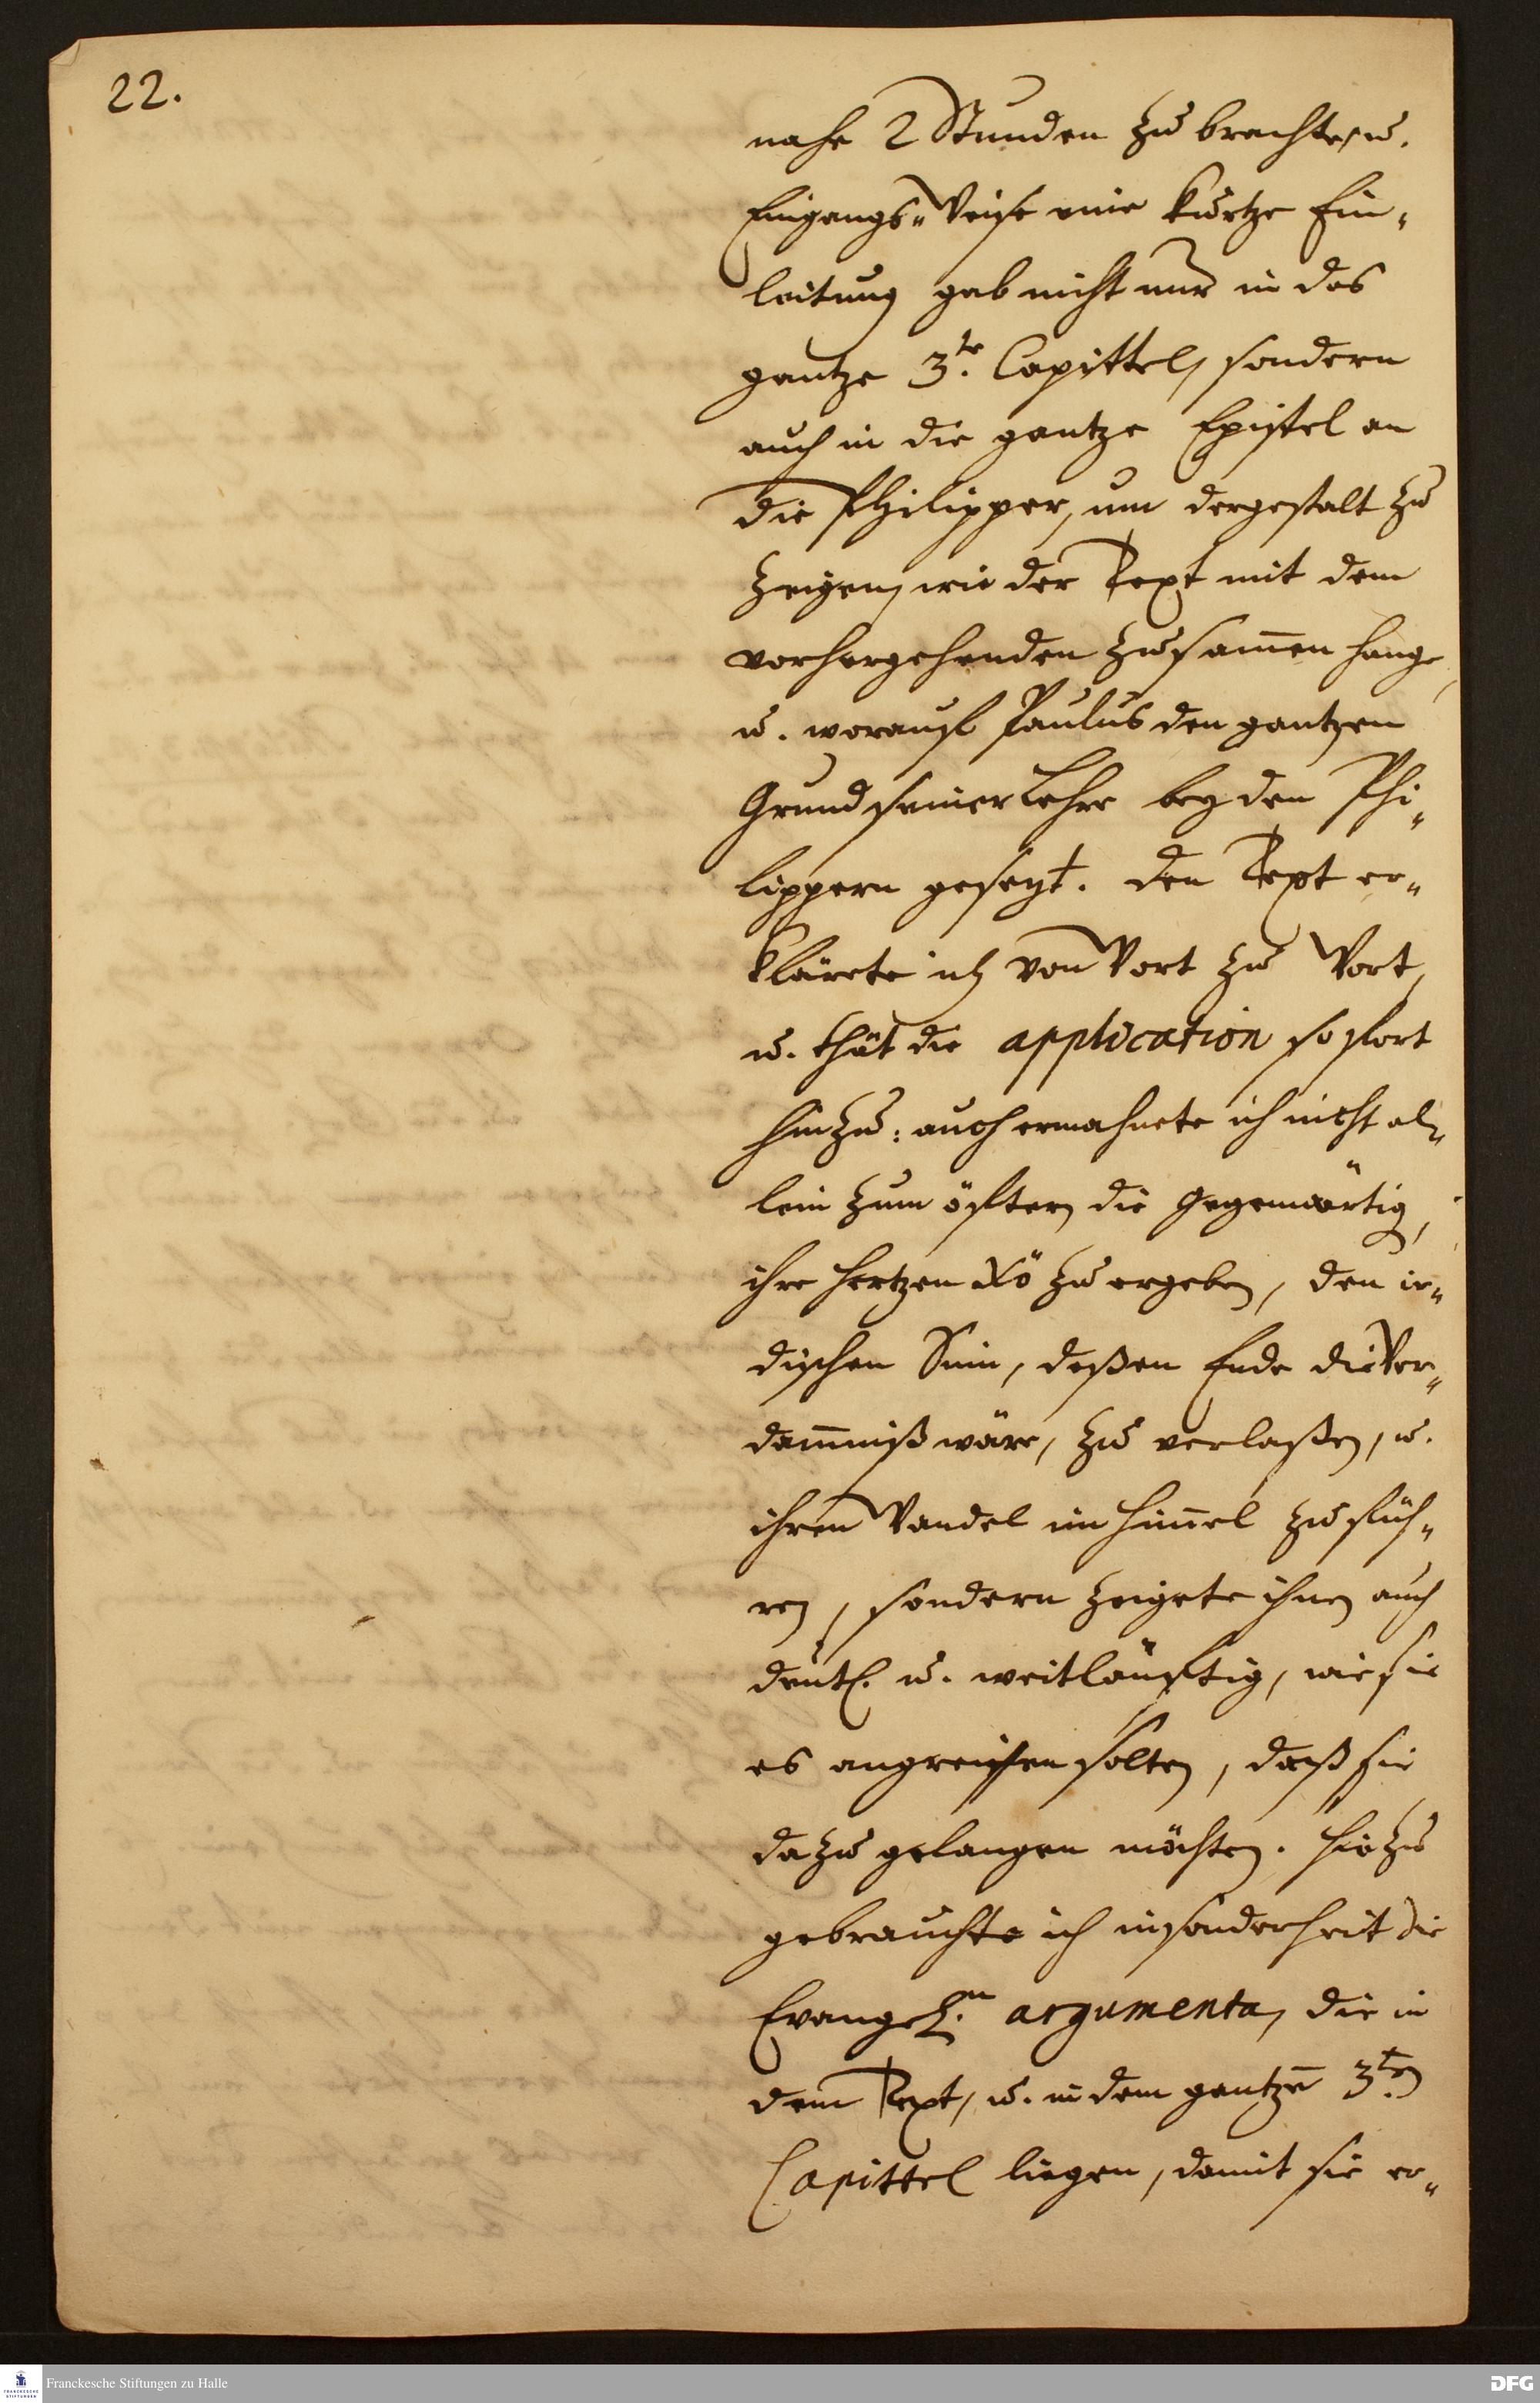 22.
nahe 2 Stunden zu brachte, u.
Eingangs-Weise eine kurtze Ein-
leitung gab nicht nur in das
gantze 3.te Capittel, sondern
auch in die gantze Epistel an
die Philipper, um dergestalt zu
zeigen, wie der Text mit dem
vorhergehenden zusam̅en hange,
u. worauf Paulus den gantzen
Grund seiner Lehre bey den Phi-
lippern gesezt. Den Text er-
klärete ich von Wort zu Wort,
u. thät die application sofort
hinzu: auch ermahnete ich nicht al-
lein zum öftern die Gegenwärtig,
ihre Hertzen Xo zu ergeben, den ir-
dischen Sinn, deßen Ende die Ver-
dam̅niß wäre, zu verlaßen, u.
ihren Wandel im Him̅el zu füh-
ren, sondern zeigete ihnen auch
deutl. u. weitläuftig, wie sie
es angreiffen solten, daß sie
dazu gelangen möchten. Hiezu
gebrauchte ich insonderheit die
Evangel.n argumenta, die in
dem Text, u. in dem gantze̅ 3.ten
Capittel liegen, damit sie er-
Franckesche Stiftungen zu Halle
DFG